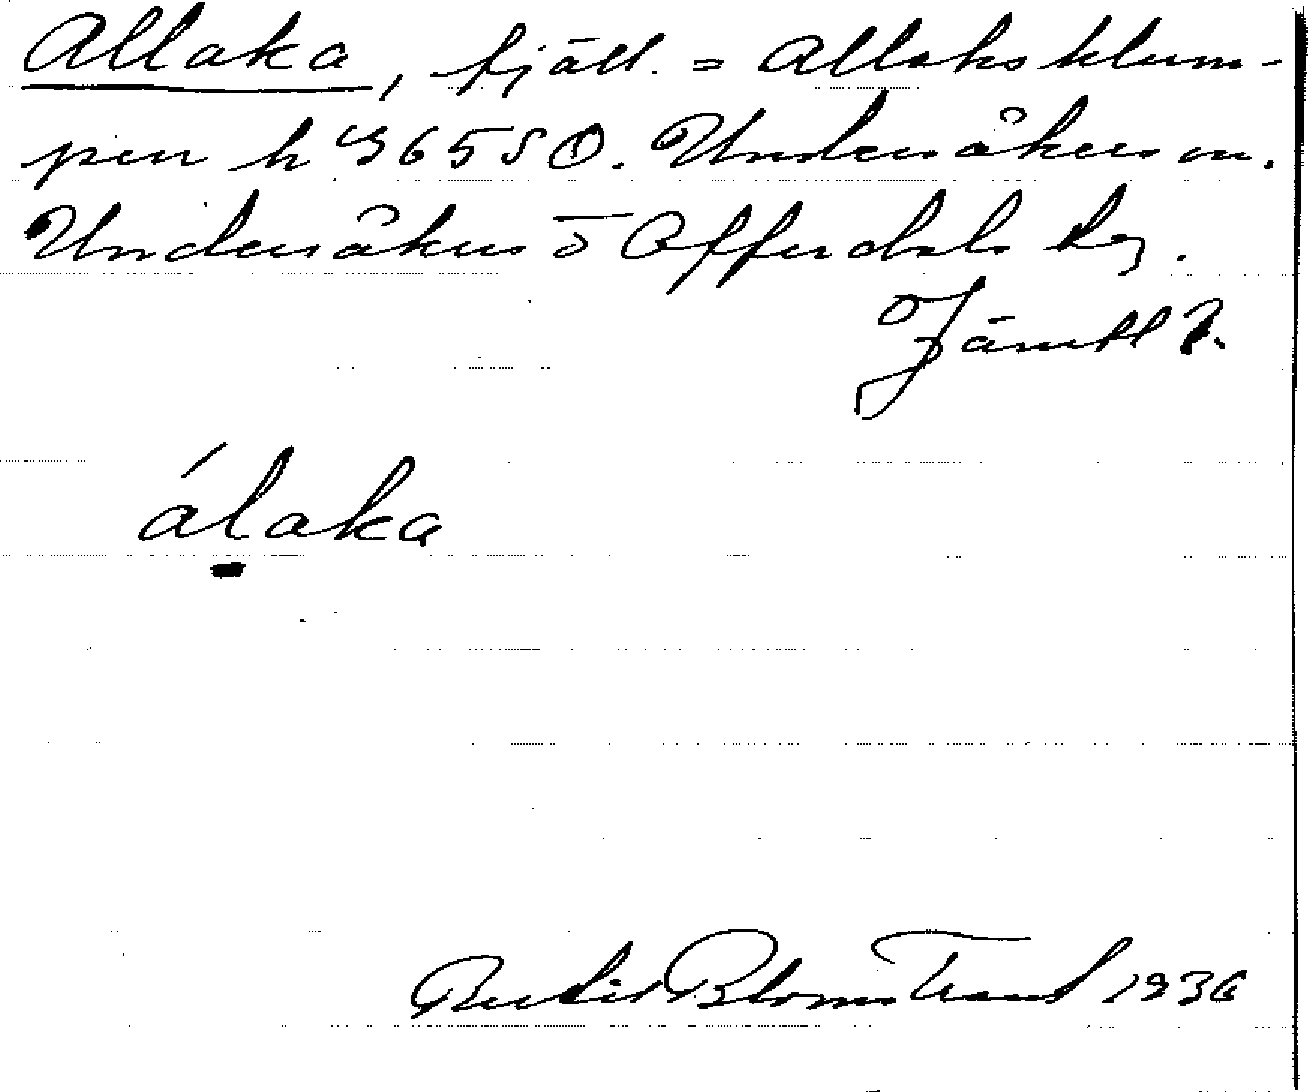 Allaka, fjäll. = Allaksklum-
pen h 3655Ö. Undersåkers sn.
Undersåkers o Offerdals tg.
Jämtl l.
álaka
Bertil Blomstrand 1936